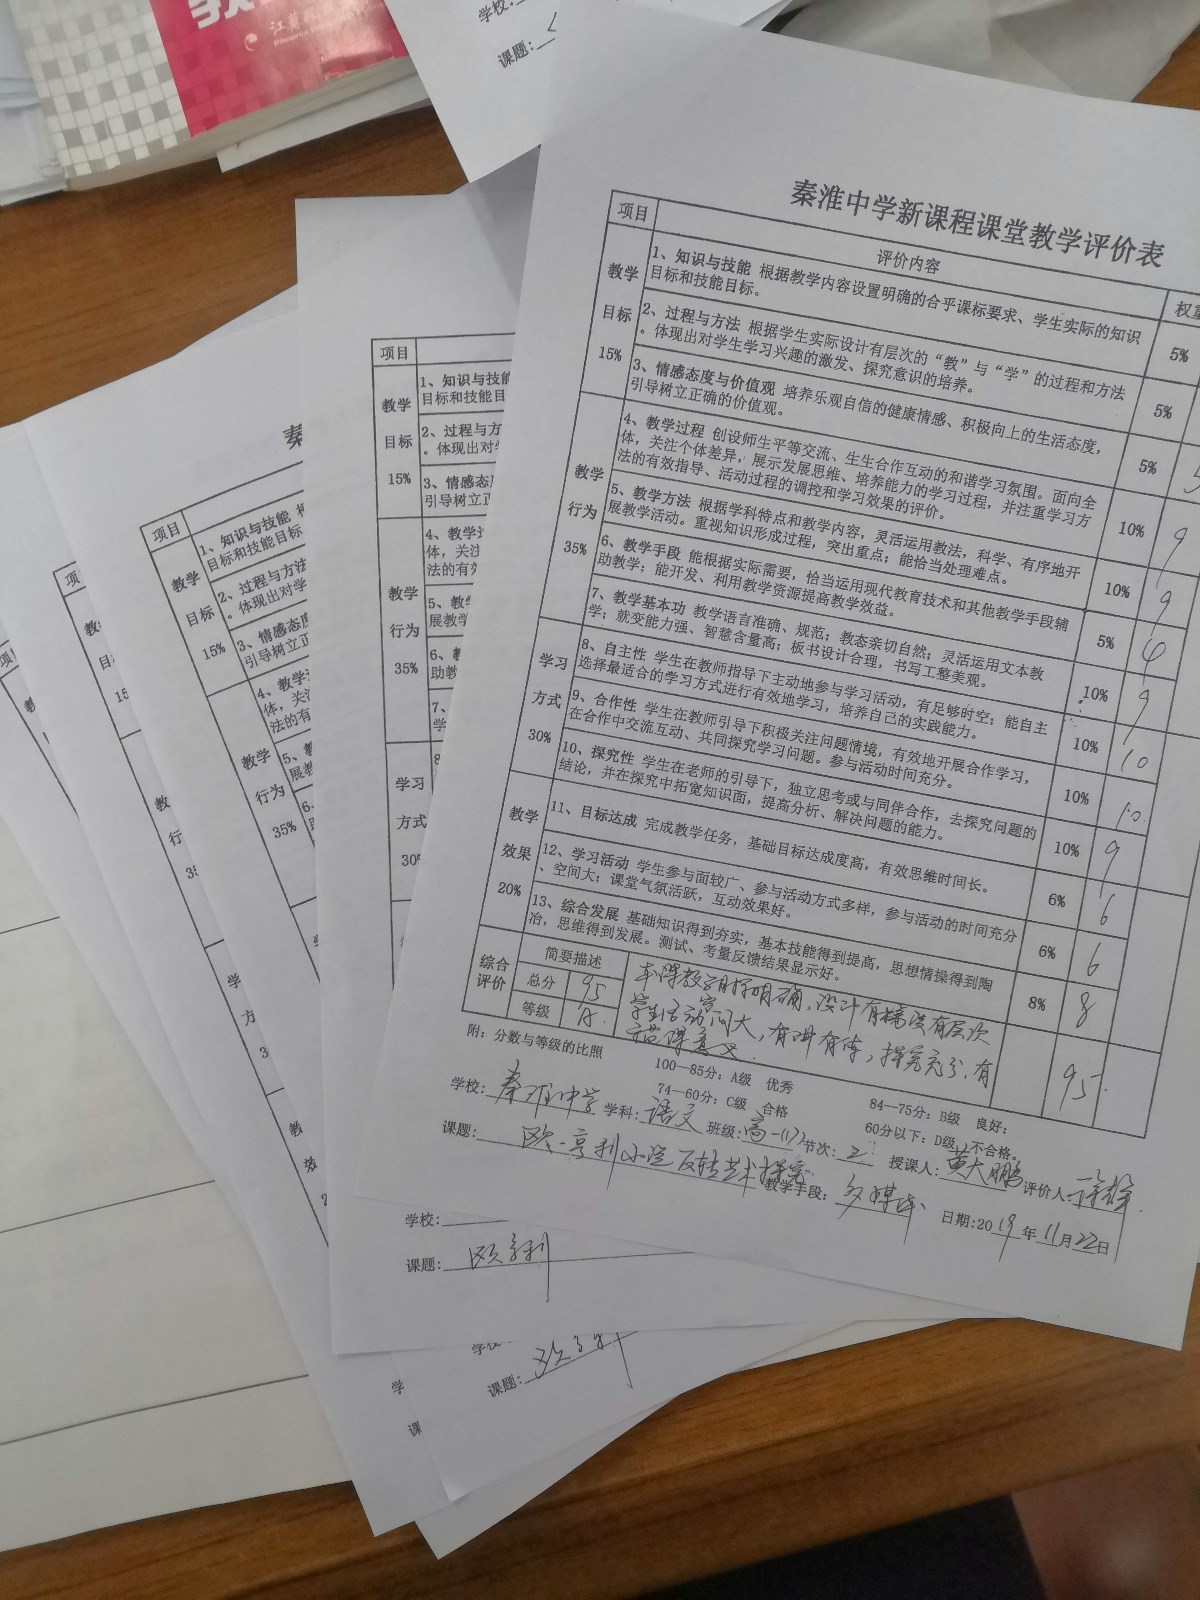 江苏
学校:
课题:
秦淮中学新课程课堂教学评价表
项目 评价内容 权重
教学目标 15%
1、知识与技能 根据教学内容设置明确的合乎课标要求、学生实际的知识
目标和技能目标。 5%
2、过程与方法 根据学生实际设计有层次的“教”与“学”的过程和方法
。体现出对学生学习兴趣的激发、探究意识的培养。 5%
3、情感态度与价值观 培养乐观自信的健康情感、积极向上的生活态度，
引导树立正确的价值观。 5% 5
教学行为 35%
4、教学过程 创设师生平等交流、生生合作互动的和谐学习氛围。面向全
体，关注个体差异，展示发展思维、培养能力的学习过程，并注重学习方
法的有效指导、活动过程的调控和学习效果的评价。 10% 9
5、教学方法 根据学科特点和教学内容，灵活运用教法，科学、有序地开
展教学活动。重视知识形成过程，突出重点；能恰当处理难点。 10% 9
6、教学手段 能根据实际需要，恰当运用现代教育技术和其他教学手段辅
助教学；能开发、利用教学资源提高教学效益。 5%
7、教学基本功 教学语言准确、规范；教态亲切自然；灵活运用文本教
学；就变能力强、智慧含量高；板书设计合理，书写工整美观。 10% 9
学习方式 30%
8、自主性 学生在教师指导下主动地参与学习活动，有足够时空；能自主
选择最适合的学习方式进行有效地学习，培养自己的实践能力。 10% 10
9、合作性 学生在教师引导下积极关注问题情境，有效地开展合作学习，
在合作中交流互动、共同探究学习问题。参与活动时间充分。 10% 10
10、探究性 学生在老师的引导下，独立思考或与同伴合作，去探究问题的
结论，并在探究中拓宽知识面，提高分析、解决问题的能力。 10% 9
教学效果 20%
11、目标达成 完成教学任务，基础目标达成度高，有效思维时间长。 6% 6
12、学习活动 学生参与面较广、参与活动方式多样，参与活动的时间充分
、空间大；课堂气氛活跃，互动效果好。 6% 6
13、综合发展 基础知识得到夯实，基本技能得到提高，思想情操得到陶
冶，思维得到发展。测试、考量反馈结果显示好。 8% 8
综合评价 简要描述
总分 95
等级 A
本课教学目标明确，设计有梯度有层次
学生活动空间大，有讲有传，探究充分，有
95
附：分数与等级的比照 100—85分：A级 优秀 84—75分：B级 良好；
74—60分：C级 合格 60分以下：D级 不合格。
学校: 秦淮中学 学科: 语文 班级: 高一(1) 节次: 2 授课人: 黄大鹏 评价人:
课题: 欧·亨利小说反转艺术探究 教学手段: 多媒体 日期:2019年11月22日
项目
教学目标 15%
1、知识与技能
目标和技能目
2、过程与方
。体现出对学
3、情感态度
引导树立正
教学行为 35%
4、教学过
体，关注
法的有效
5、教学
展教学
6、教
助教
7、
学
学习方式
学校:
课题: 欧亨利
秦
项目
教学目标 15%
1、知识与技能 根
目标和技能目标
2、过程与方法
。体现出对学
3、情感态度
引导树立正
教学行为 35%
4、教学
体，关
法的有
5、教
展教
6、
学校
课题: